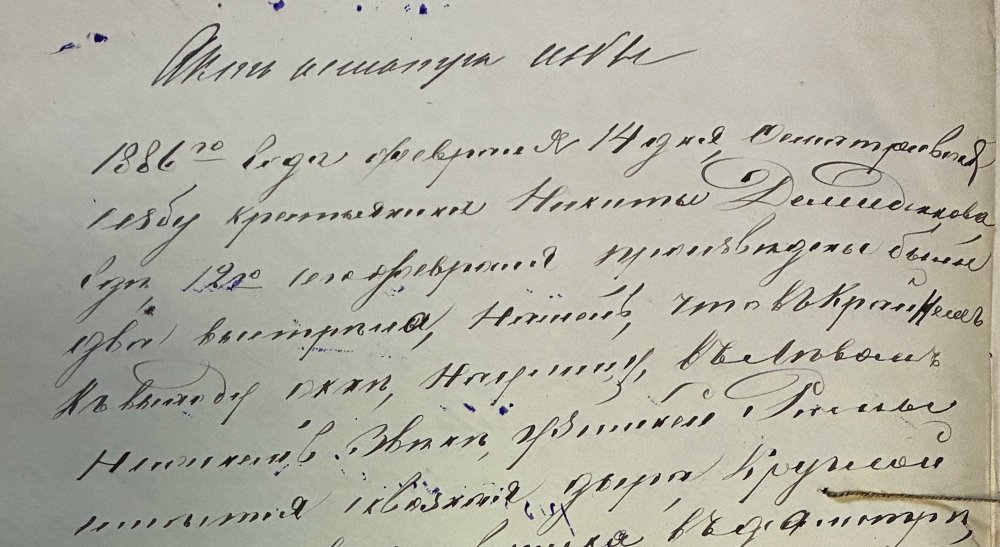 Актъ осмотра избы
1886 го года февраля 14 дня, Осматривалъ
избу крестьянина Никиты Демидан​кова,
гдѣ, 12 го сего февраля произведены были
два выстрѣла, Нашелъ, что въ крайнемъ
къ выходу окнѣ, наружу, въ лѣвомъ
нижнемъ звенѣ, Рамы
имѣется сквозная дыра, Круглой
въ діаметрѣ,